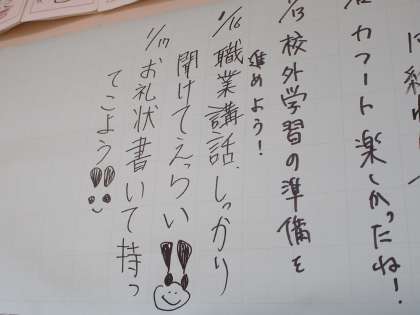 カフート楽しかったね!
1/13 校外学習の準備を
進めよう!
1/16 職業講話、しっかり
聞けてえらい!!
1/17 お礼状書いて持っ
てこよう!!